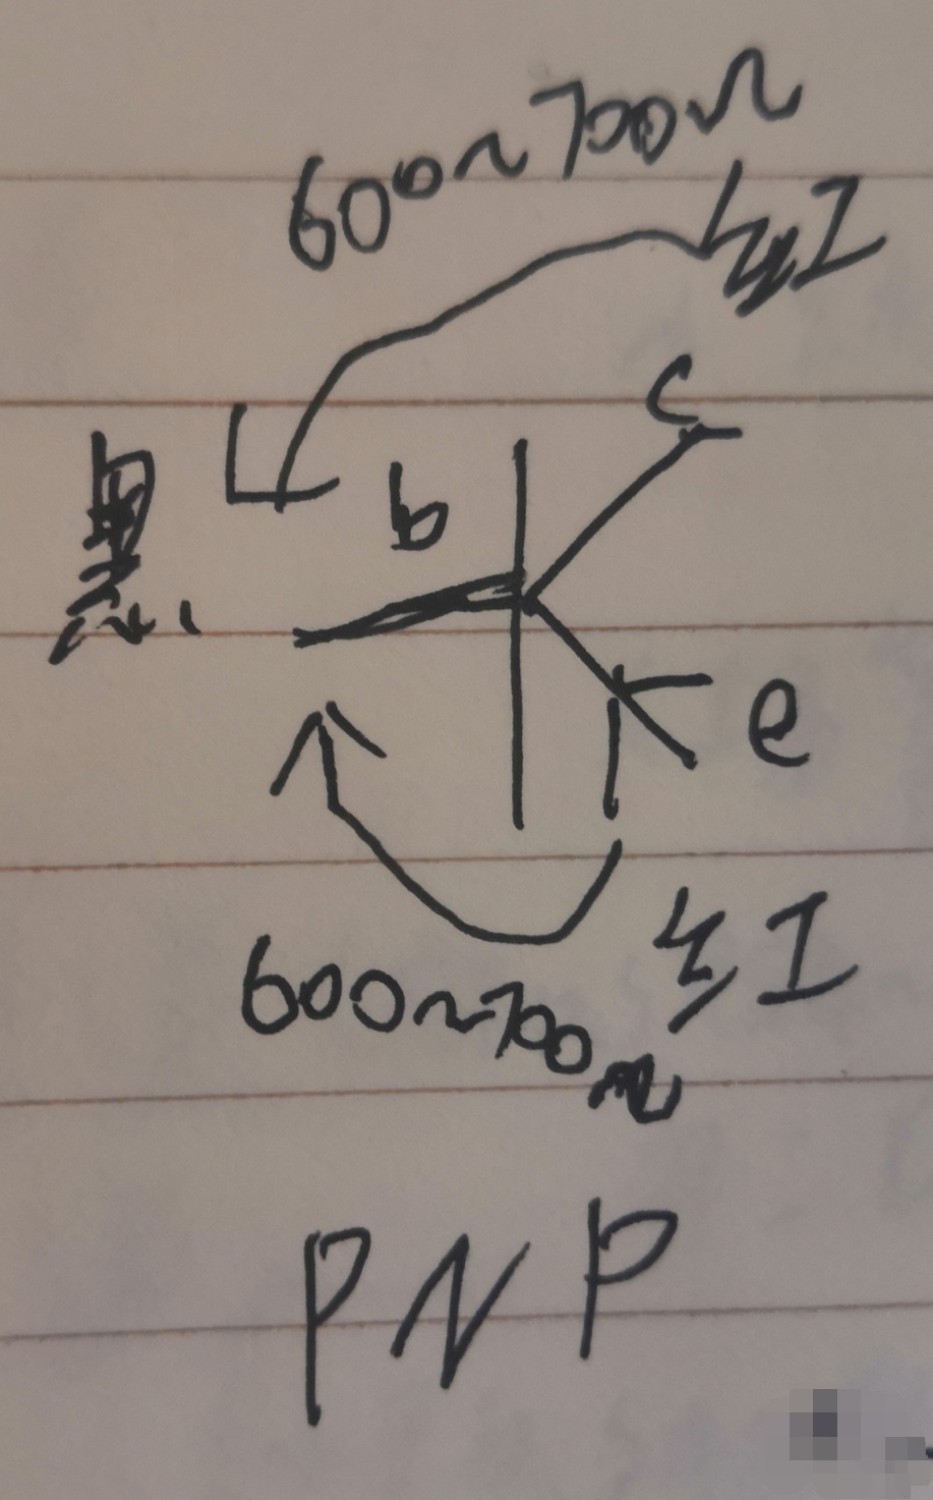 600~700Ω
红
c
黑
b
e
红
600~700Ω
PNP